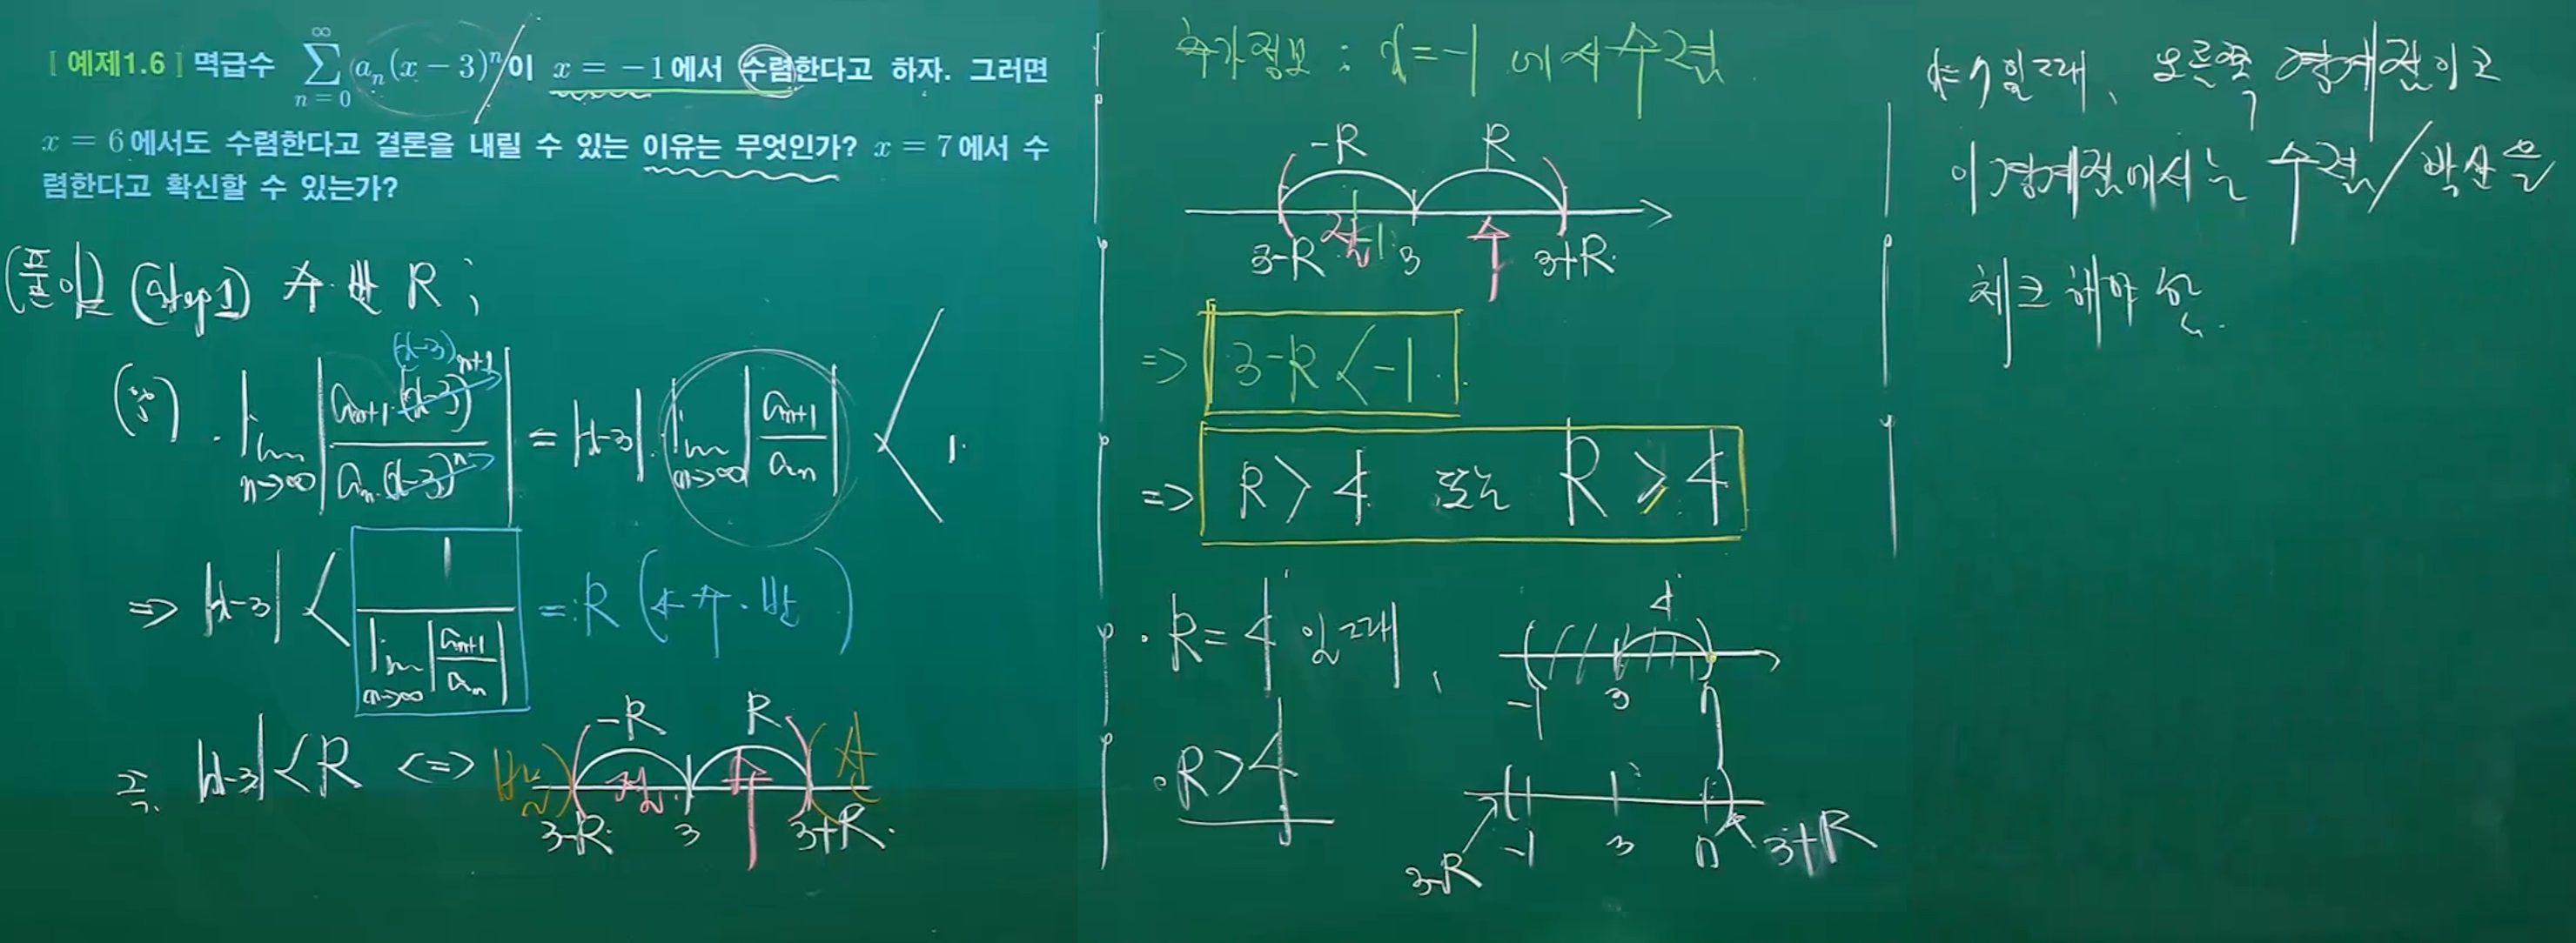 [예제1.6] 멱급수 \sum_{n=0}^{\infty} a_n(x-3)^n 이 x = -1에서 수렴한다고 하자. 그러면
x = 6에서도 수렴한다고 결론을 내릴 수 있는 이유는 무엇인가? x = 7에서 수
렴한다고 확신할 수 있는가?
(풀이) (Step1) 수·반 R ;
(∵) \lim_{n→∞} | a_{n+1}·(x-3)^{n+1} / a_n·(x-3)^n | = |x-3|·\lim_{n→∞} | a_{n+1} / a_n | < 1.
(x-3)
⇒ |x-3| < 1 / \lim_{n→∞} | a_{n+1} / a_n | =: R (수·반)
즉, |x-3| < R <=> 발산) -R R (발산
절대 수
3-R 3 3+R.
추가정보 : x=-1 에서 수렴
-R R
절대 -1 수
3-R 3 3+R.
⇒ 3-R < -1.
⇒ R > 4 또는 R ≥ 4
· R = 4 일 때, 4
-1 3 7
· R > 4
3-R -1 3 7 3+R
x=7일 때, 오른쪽 경계점이고
이 경계점에서는 수렴/발산을
체크해야 함.